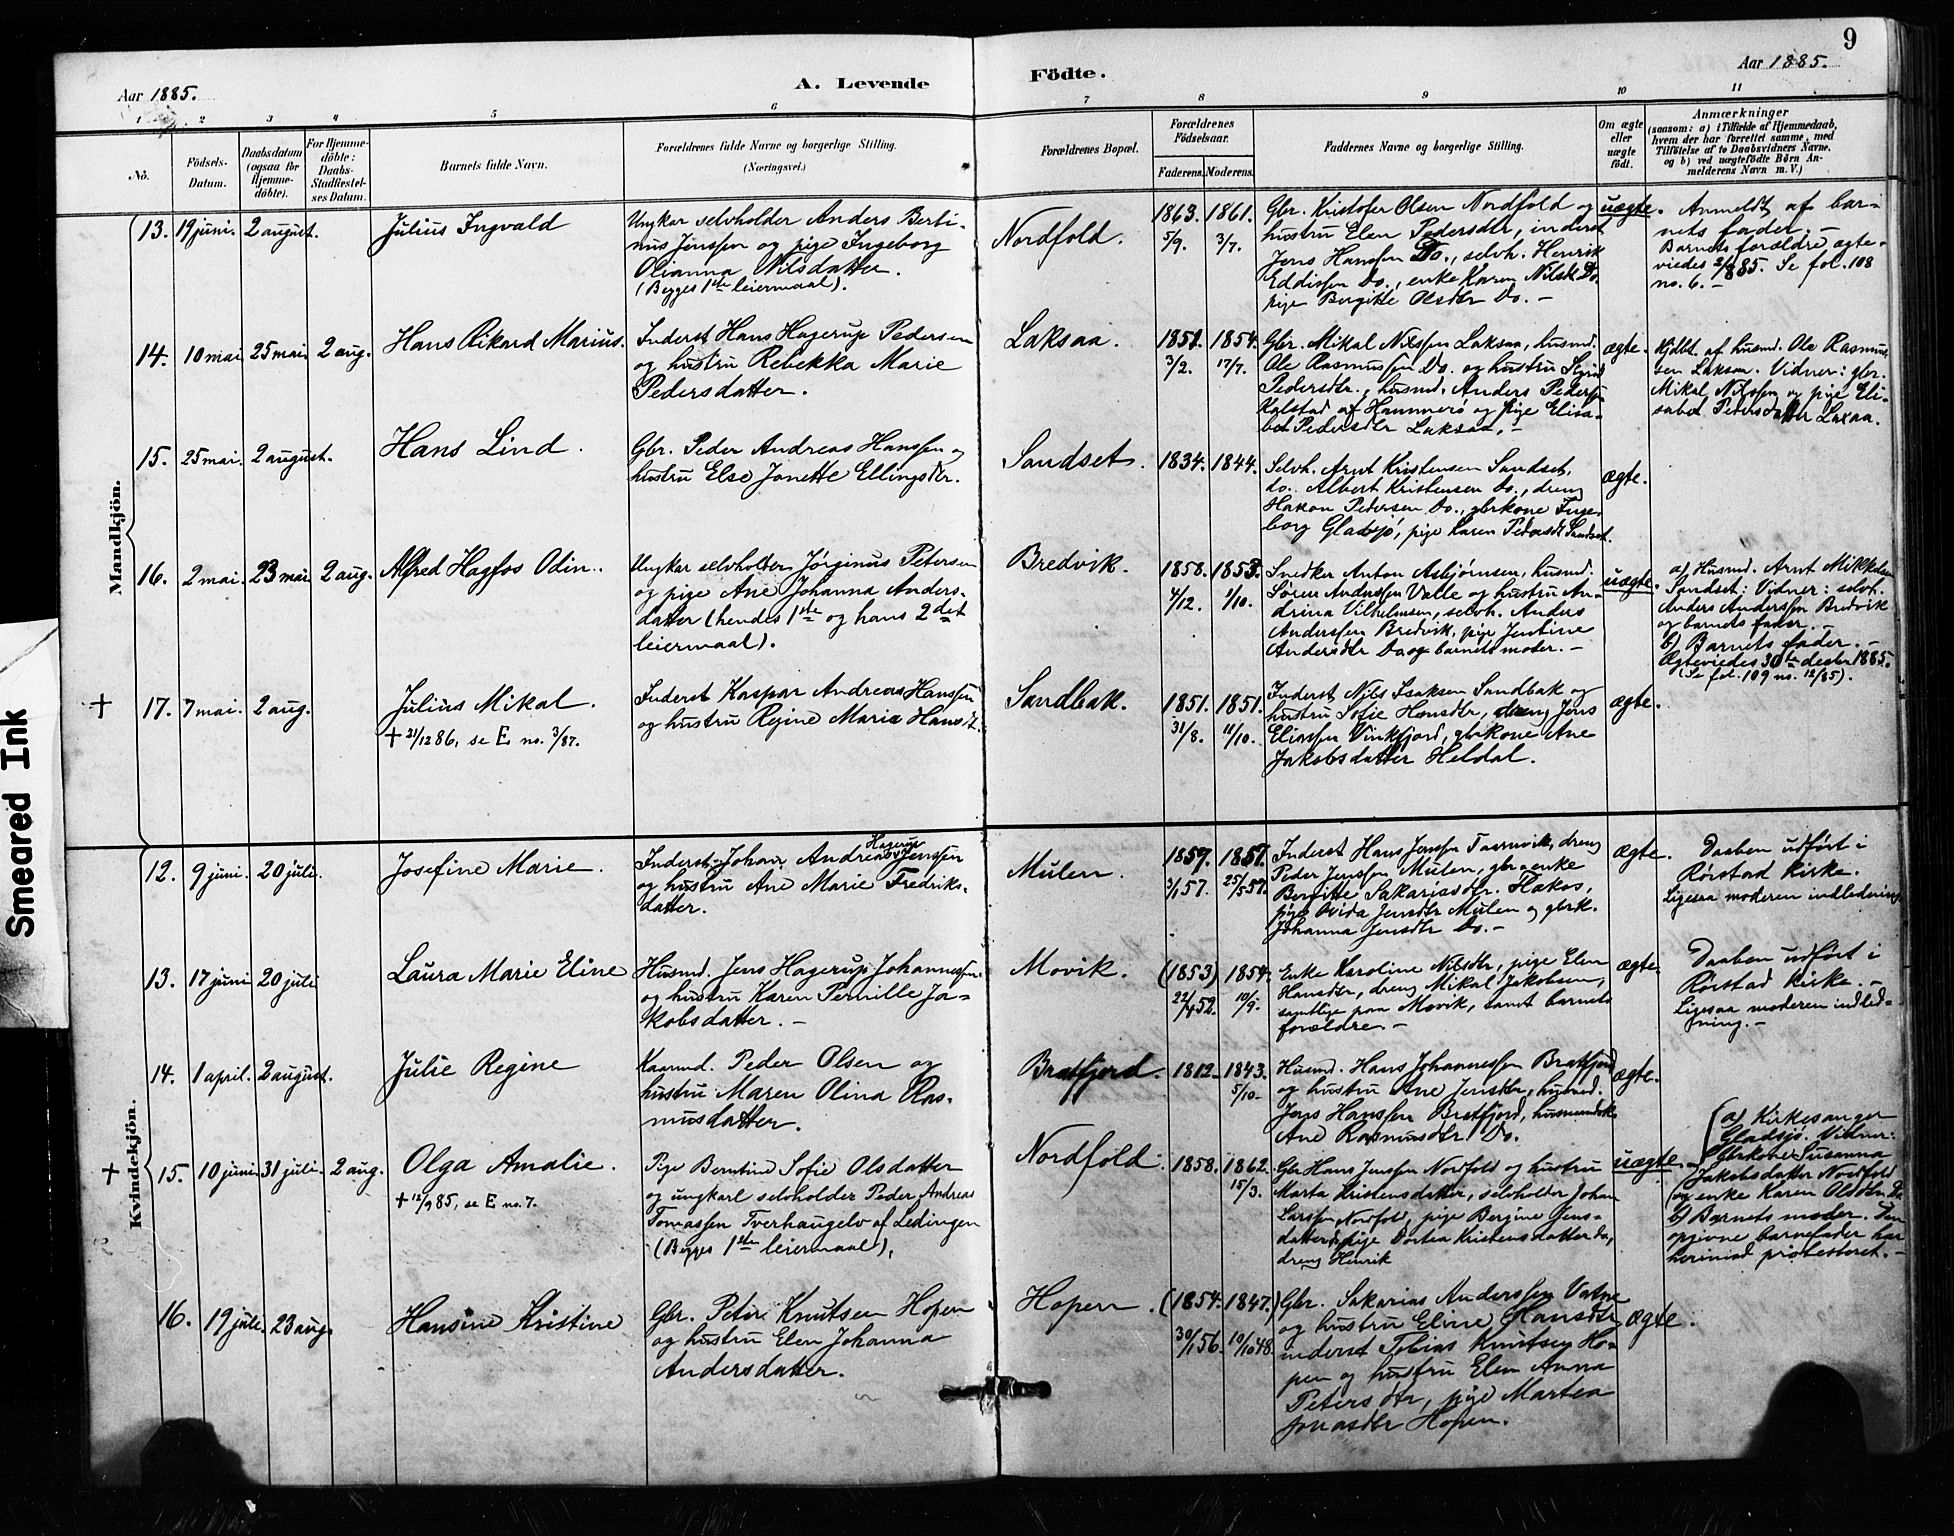 9
Aar 1885.
A. Levende
Födte.
Aar 1885.
1 2 3 4 5 6 7 8 9 10 11
No.
Födsels-
Datum.
Daabsdatum
(ogsaa for
Hjemme-
döbte).
For Hjemme-
döbte:
Daabs-
Stadfæstel-
ses Datum.
Barnets fulde Navn.
Forældrenes fulde Navne og borgerlige Stilling.
(Næringsvei.)
Forældrenes Bopæl.
Forældrenes
Födselsaar.
Faderens. Moderens.
Faddernes Navne og borgerlige Stilling.
Om ægte
eller
uægte
födt.
Anmærkninger
(saasom: a) i Tilfælde af Hjemmedaab,
hvem der har forrettet samme, med
Tilföielse af to Daabsvidners Navne,
og b) ved uægtefödte Börn An-
melderens Navn m. V.)
Mandkjön.
13. 19 juni. 2 august.
Julius Ingvald
Ungkar selvholder Anders Berti-
nus Jenssen og pige Ingeborg
Olianna Nilsdatter.
(Begges 1ste leiermaal).
Nordfold.
1863. 1861.
5/9. 3/7.
Gbr. Kristofer Olsen Nordfold og
hustru Elen Pedersdtr, inderst
Jens Hanssen Do., selvh. Henrik
Eddissen Do., enke Karen Nilsdt Do.
pige Bergitte Olsdtr Do. -
uægte.
Anmeldt af bar-
nets fader. -
Barnets forældre ægte-
viedes 2/8 85. Se fol. 108
no. 6. -
14. 10 mai. 25 mai. 2 aug.
Hans Rikard Marius.
Inderst Hans Hagerup Pedersen
og hustru Rebekka Marie
Pedersdatter.
Laksaa.
1851. 1854.
3/2. 17/7.
Gbr. Mikal Nilssen Laksaa, husmd.
Ole Rasmussen Do. og hustru Sigrid
Pedersdtr., husmd. Anders Peders
Kalstad af Hammerö og pige Elisa-
bet Pedersdtr Laksaa. -
ægte.
Hjdbt. af husmd. Ole Rasmus
sen Laksaa. Vidner: gbr.
Mikal Nilssen og pige Eli-
sabet Pedersdatter Laxaa.
15. 25 mai. 2 august.
Hans Lind.
Gbr. Peder Andreas Hanssen og
hustru Else Janette Ellingsdtr.
Sandset.
1834. 1844.
Selvh. Arnt Kristensen Sandset,
do. Albert Kristensen Do., dreng
Hakon Pedersen Do., gbrkone Inge-
borg Gladsjö, pige Karen Pedersdt Sandset.
ægte.
16. 2 mai. 23 mai 2 aug.
Alfred Hagfos Odin.
Ungkar selvholder Jørginus Petersen
og pige Ane Johanna Anders-
datter (hendes 1ste og hans 2det
leiermaal).
Bredvik.
1858. 1853.
4/12. 1/10.
Snedker Anton Asbjørnsen, husmd.
Søren Anderssen Valle og hustru An-
drina Vilhelmsen, selvh. Anders
Anderssen Bredvik, pige Jentine
Andersdtr Do og barnets moder. -
uægte.
a) Husmd. Arnt Mikkelsen
Sandset: Vidner: selvh.
Anders Anderssen Bredvik
og barnets fader. -
b) Barnets fader. -
Ægteviedes 30te decbr 1885.
(Se fol. 109 no. 12/85).
+ 17. 7 mai. 2 aug.
Julius Mikal.
+ 21/12 86, se E no. 3/87.
Inderst Kaspar Andreas Hanssen
og hustru Regine Marie Hansdt.
Sandbak.
1851. 1851.
31/8. 11/10.
Inderst Nils Isaksen Sandbak og
hustru Sofie Hansdtr, dreng Jens
Eliassen Vinkfjord, gbrkone Ane
Jakobsdatter Heldal.
ægte.
Kvindekjön.
12. 9 juni. 20 juli.
Josefine Marie.
Hagerup
Inderst Johan Andreas Jenssen
og hustru Ane Marie Fredriks-
datter.
Mulen.
1857. 1857.
3/1 57. 25/5 57.
Inderst Hans Jenssen Taarnvik, dreng
Peder Jenssen Mulen, gbr enke
Bergitte Sakariasdtr. Flakos,
pige Ovida Jensdtr Mulen og gbrk.
Johanna Jensdtr Do. -
ægte.
Daaben udført i
Rørstad kirke.
Ligesaa moderen indledning.
13. 17 juni 20 juli
Laura Marie Eline
Husmd. Jens Hagerup Johannessen
og hustru Karen Pernille Ja-
kobsdatter. -
Movik.
(1853) 1854.
22/4 52. 10/9.
Enke Karoline Nilsdtr, pige Elen
Hansdtr, dreng Mikal Jakobsen,
samtlige paa Movik, samt barnets
forældre. -
ægte.
Daaben udført i
Rørstad kirke. -
Ligesaa moderen indled-
ning. -
14. 1 april. 2 august.
Julie Regine
Kaarmd. Peder Olsen og
hustru Maren Olina Ras-
musdatter.
Bratfjord.
1812. 1843.
5/10.
Husmd. Hans Johannessen Bratfjord
og hustru Ane Jensdtr, husmd.
Jens Hanssen Bratfjord, husmandsk
Ane Rasmusdtr Do.
ægte.
+ 15. 10 juni. 31 juli. 2 aug.
Olga Amalie.
+ 12/9 85, se E no. 7.
Pige Berntine Sofie Olsdatter
og ungkarl selvholder Peder Andreas
Tomassen Tverhaugelv af Lødingen
(Begges 1ste leiermaal).
Nordfold.
1858. 1862.
15/3.
Gbr Hans Jenssen Nordfold og hustru
Marta Kristensdatter, selvholder Johan
Larssen Nordfold, pige Bergine Jens-
datter do, pige Dortea Kristensdatter do,
dreng Henrik
uægte.
(a) Kirkesanger
Gladsjö. Vidner:
Gbrkone Susanna
Jakobsdatter Nordfold
og enke Karen Olsdtr Do
b) Barnets moder. Den
opgivne barnefader har
herimod protesteret. -
16. 19 juli. 23 aug.
Hansine Kristine
Gbr. Peter Knutsen Hopen
og hustru Elen Johanna
Andersdatter.
Hopen.
(1854. 1847.)
30/1 56. 10/10 48.
Gbr. Sakarias Anderssen Vatne
og hustru Eline Hansdtr,
inderst Tobias Knutsen Ho-
pen og hustru Elen Anna
Petersdtr, pige Martea
Jonasdtr Hopen.
ægte.
Smeared Ink